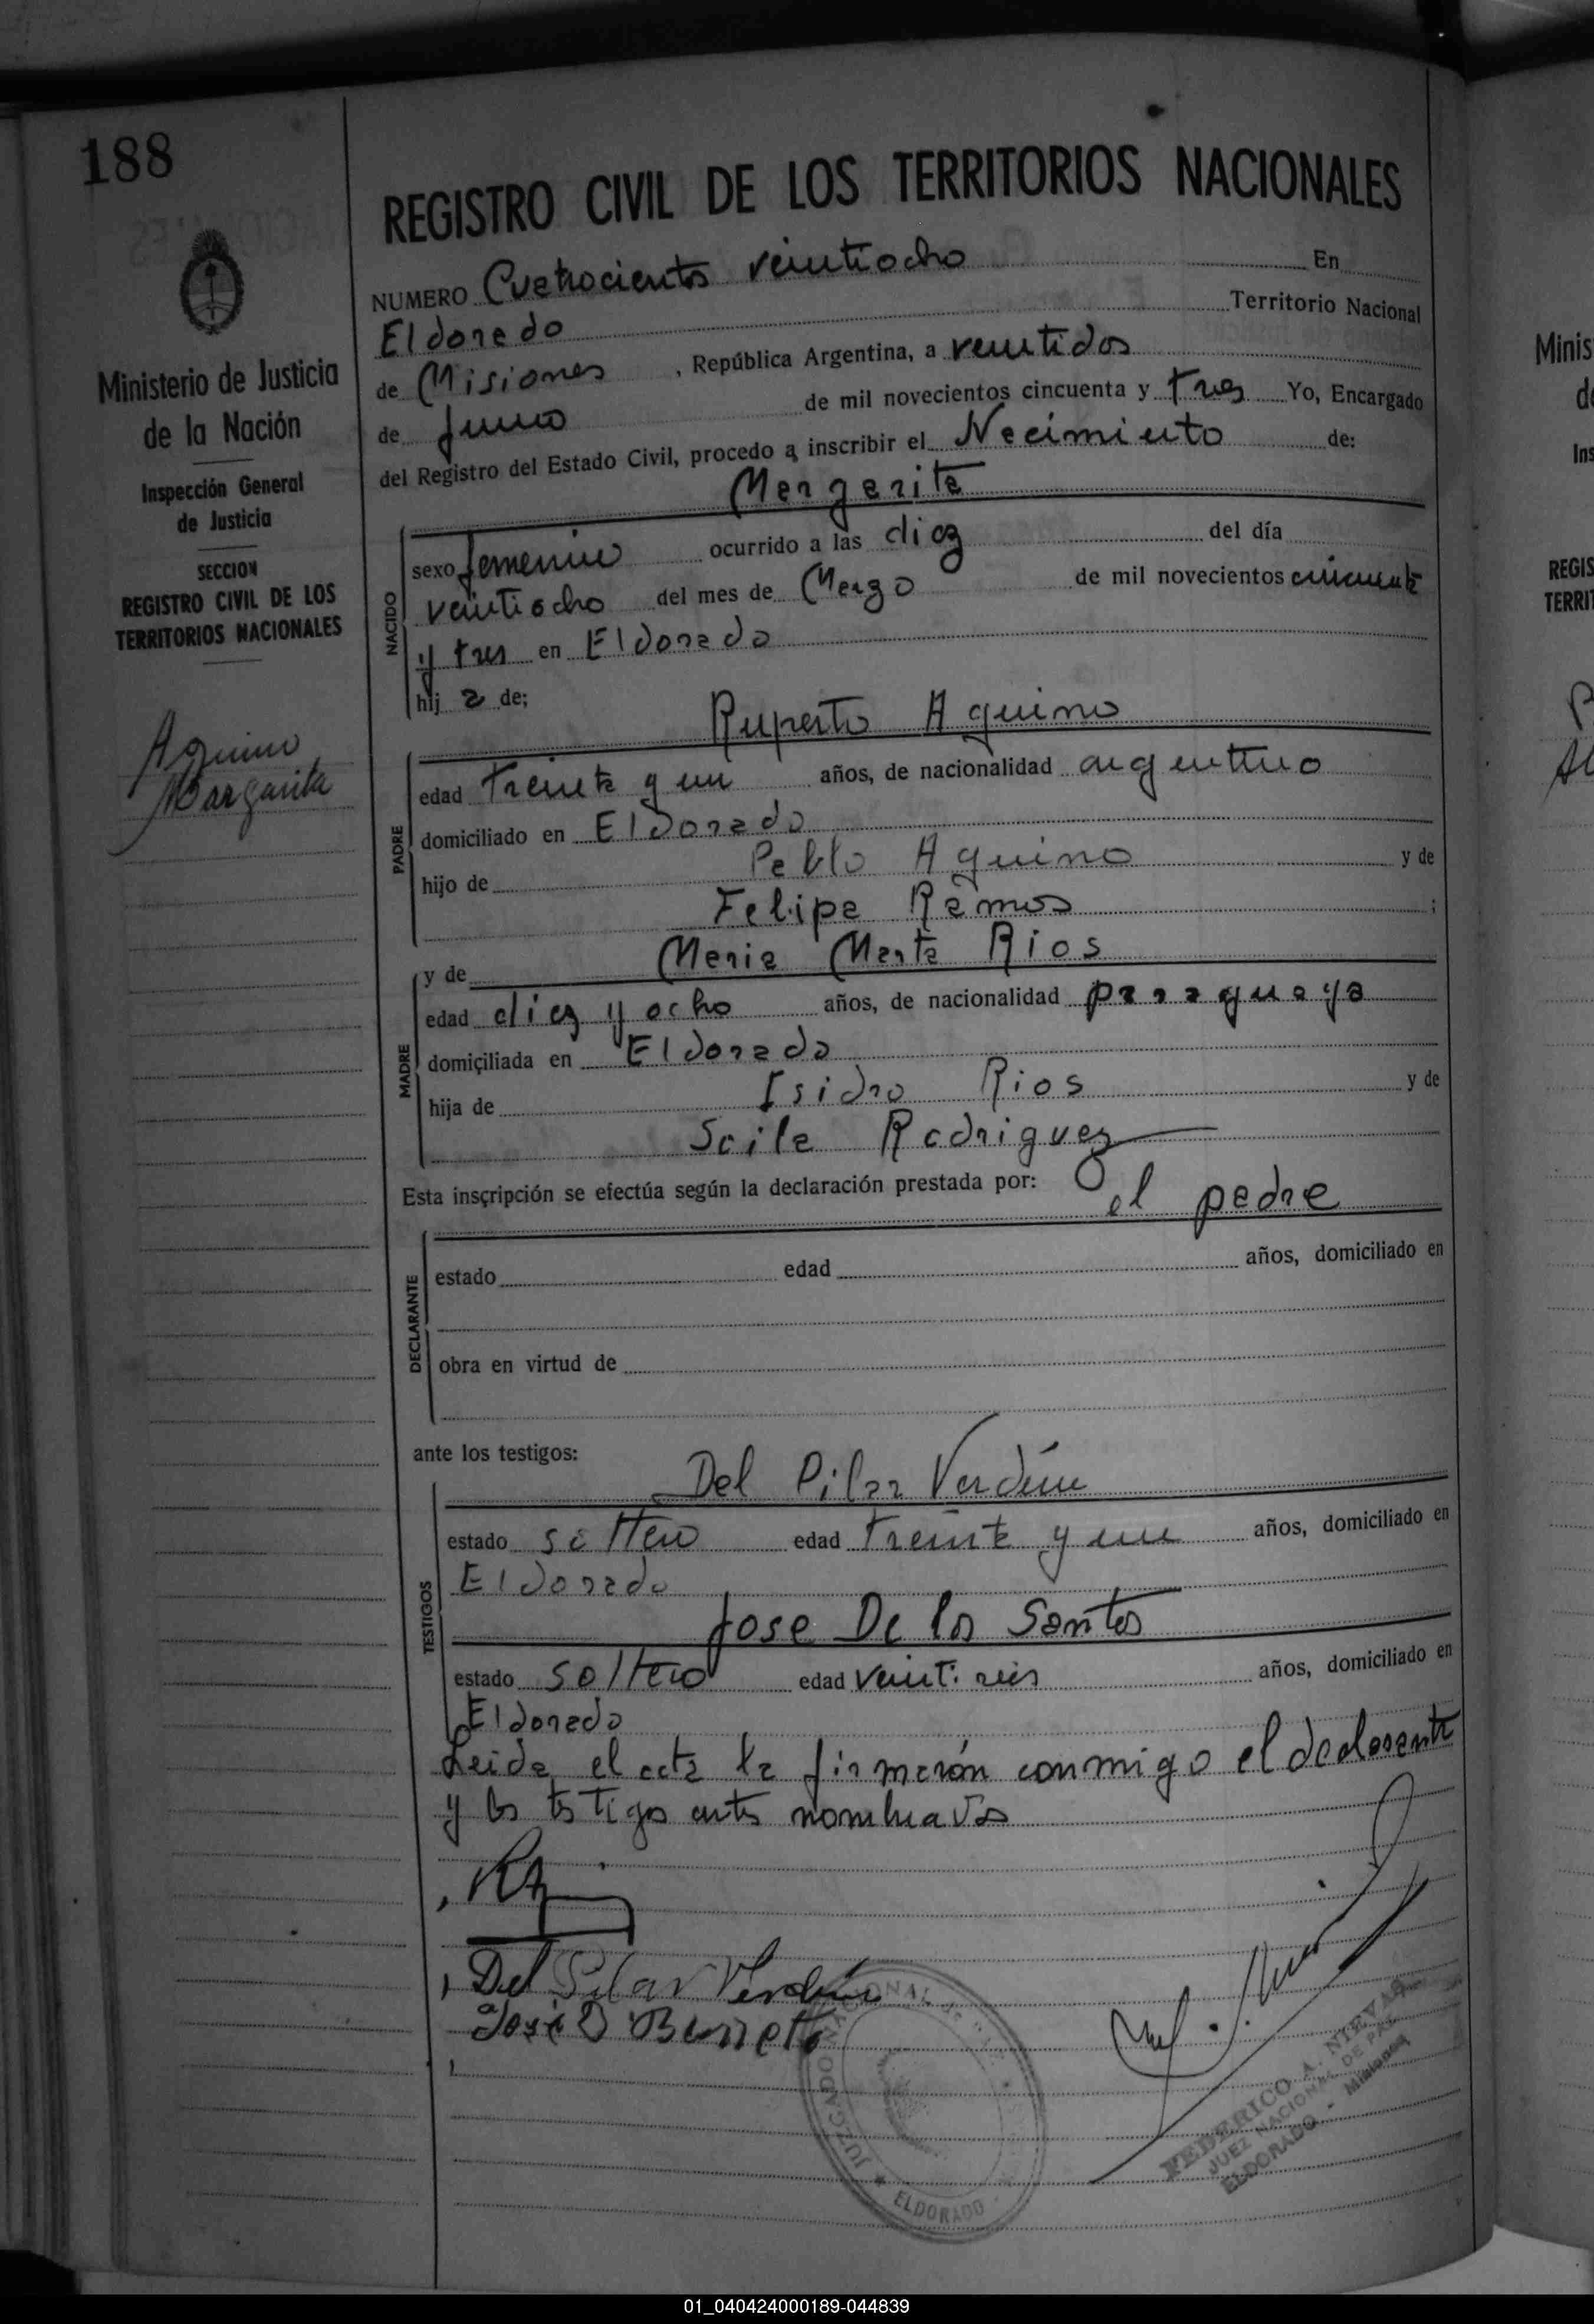 188
REGISTRO CIVIL DE LOS TERRITORIOS NACIONALES
Ministerio de Justicia
de la Nación
Inspección General
de Justicia
SECCION
REGISTRO CIVIL DE LOS
TERRITORIOS NACIONALES
Aquino
Margarita
NUMERO Cuatrocientos veintiocho En
Eldorado Territorio Nacional
de Misiones, República Argentina, a veintidos
de Junio de mil novecientos cincuenta y tres Yo, Encargado
del Registro del Estado Civil, procedo a inscribir el Nacimiento de:
Margarita
NACIDO
sexo femenino ocurrido a las diez del día
veintiocho del mes de Marzo de mil novecientos cincuenta
y tres en Eldorado
hij a de;
Ruperto Aquino
PADRE
edad treinta y un años, de nacionalidad argentino
domiciliado en Eldorado
hijo de Pablo Aquino y de
Felipa Ramos ;
y de Maria Marta Rios
MADRE
edad diez y ocho años, de nacionalidad paraguaya
domiciliada en Eldorado
hija de Isidro Rios y de
Rodriguez
Esta inscripción se efectúa según la declaración prestada por:
el padre
DECLARANTE
estado edad años, domiciliado en
obra en virtud de
ante los testigos:
Del Pilar Verdún
TESTIGOS
estado soltero edad treinta y un años, domiciliado en
Eldorado
Jose De los Santos
estado soltero edad veintiseis años, domiciliado en
Eldorado
Leida el acta la firmarón conmigo el declarante
y los testigos antes nombrados
Del Pilar Verdún
José D Barreto
JUZGADO NACIONAL DE PAZ
ELDORADO
FEDERICO A. NIEVAS
JUEZ NACIONAL DE PAZ
ELDORADO - Misiones
Minis
REGIS
TERRI
01_040424000189-044839